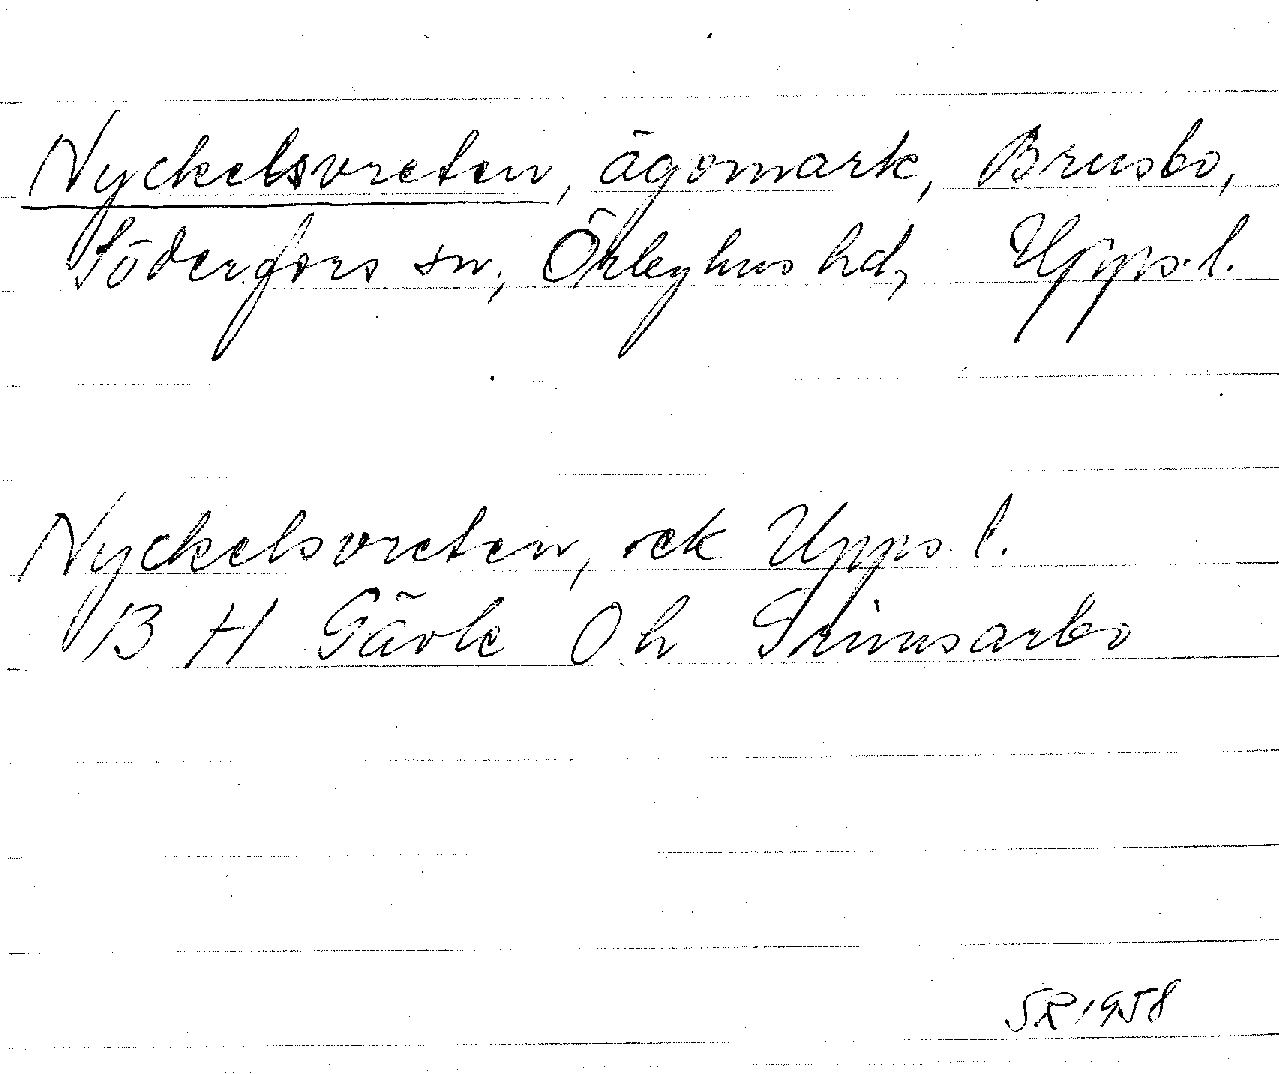 Nyckelsvreten, ägomark, Brusbo,
Söderfors sn, Örbyhus hd, Upps. l.
Nyckelsvreten, ek Upps l.
B H Gävle O h
SR 1958